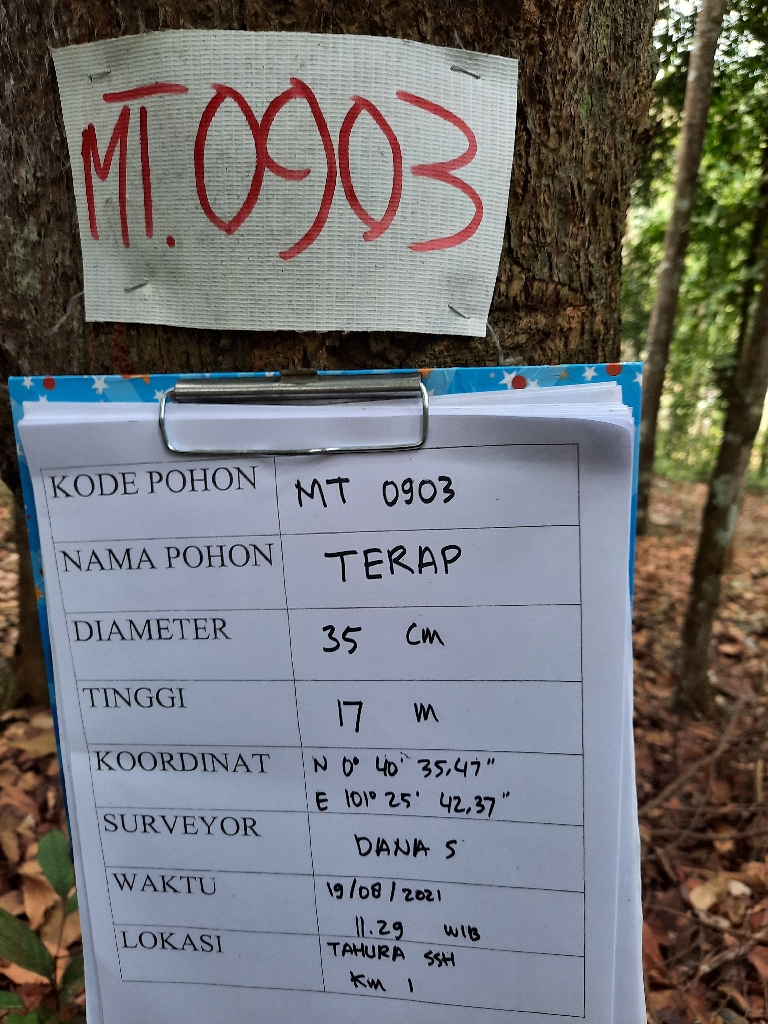 MT. 0903
KODE POHON MT 0903
NAMA POHON TERAP
DIAMETER 35 cm
TINGGI 17 m
KOORDINAT N 0° 40' 35,47"
E 101° 25' 42,37"
SURVEYOR DANA S
WAKTU 19/08/2021
11.29 WIB
LOKASI TAHURA SSH
Km 1